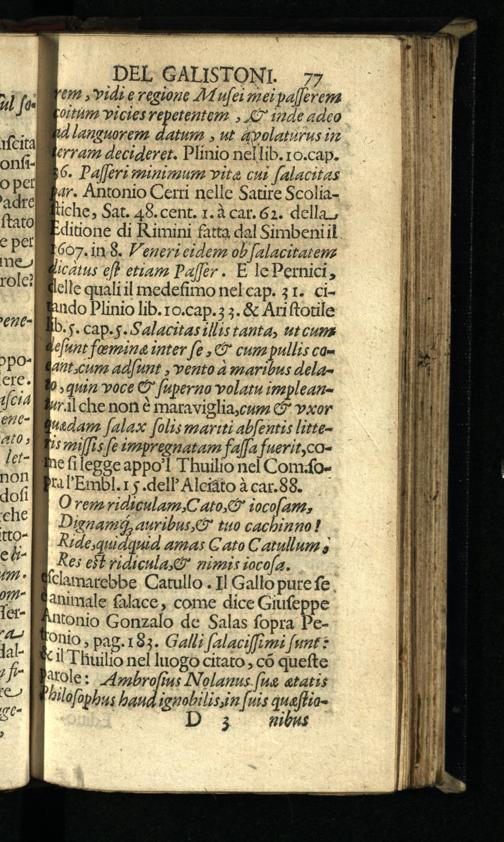 DEL GALISTONI. 77
rem, vidi e regione Musei mei passerem
coitum vicies repetentem, & inde adeo
ad languorem datum, ut avolaturus in
terram decideret. Plinio nel lib. 10. cap.
36. Passeri minimum vitæ cui salacitas
par. Antonio Cerri nelle Satire Scolia-
stiche, Sat. 48. cent. 1. à car. 62. della
Editione di Rimini fatta dal Simbeni il
1607. in 8. Veneri eidem ob salacitatem
dicatus est etiam Passer. E le Pernici,
delle quali il medesimo nel cap. 31. ci-
tando Plinio lib. 10. cap. 33. & Aristotile
lib. 5. cap. 5. Salacitas illis tanta, ut cum
desunt fœminæ inter se, & cum pullis co-
eant, cum adsunt, vento à maribus dela-
to, quin voce & superno volatu implean-
tur. il che non è maraviglia, cum & vxor
quædam salax solis mariti absentis litte-
ris missis se impregnatam fassa fuerit, co-
me si legge appo'l Thuilio nel Com. so-
pra l'Embl. 15. dell'Alciato à car. 88.
O rem ridiculam, Cato, & iocosam,
Dignamq, auribus, & tuo cachinno!
Ride, quidquid amas Cato Catullum;
Res est ridicula, & nimis iocosa.
esclamarebbe Catullo. Il Gallo pure se
è animale salace, come dice Giuseppe
Antonio Gonzalo de Salas sopra Pe-
tronio, pag. 183. Galli salacissimi sunt:
& il Thuilio nel luogo citato, cō queste
parole: Ambrosius Nolanus suæ ætatis
Philosophus haud ignobilis, in suis quæstio-
D 3 nibus